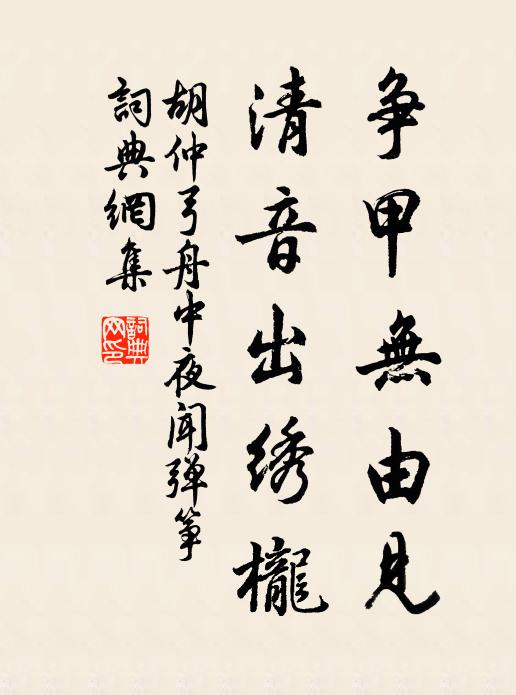 争甲無由見
清音出绣櫳
胡仲弓舟中夜聞弹筝
詞典網集
詞典
网印